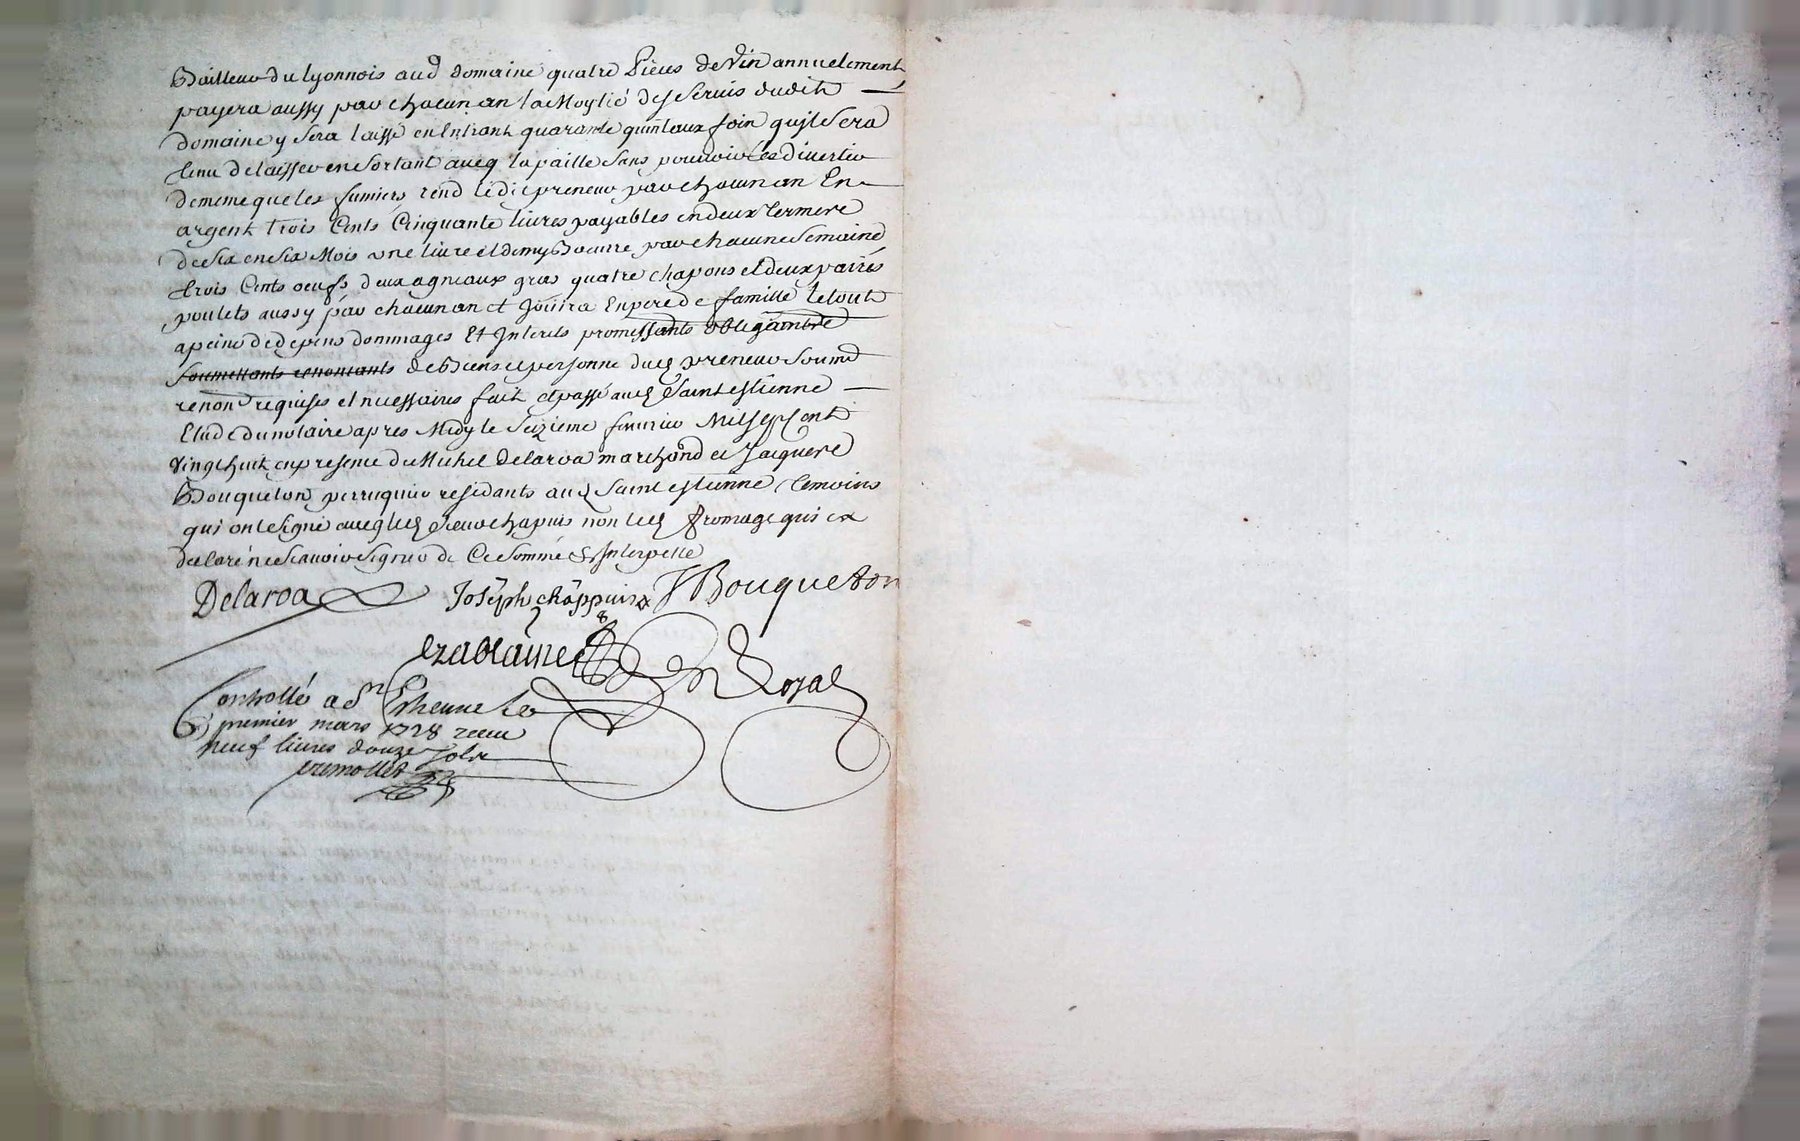 Bailleur du lyonnois aud domaine quatre pieces de vin annuelement
payera aussy par chacun an la Moytié des servis dudit
domaine y sera laissé en Entrant quarante quintaux foin qu'jl sera
tenu de laisser en sortant avecq la paille sans pouvoir les divertir
de meme que les fumiers, rend ledit preneur par chacun an En
argent trois Cents Cinquante livres payables en deux termes
de six en six Mois une livre et demy Beurre par chacune semaine
trois Cents oeufs deux agneaux gras quatre chapons et deux paires
poulets aussy par chacun an et Joüira En pere de famille le tout
a peine de depens dommages Et Jnterets promettants obligeants
soumettants renonçants de Biens et personne dud preneur soumd
renond requises et necessaires fait et passé aud Saint estienne
Etude du notaire apres Midy le seizieme feuvrier Mil sept Cent
vingt huit en presence de Michel Delaroa marchand et Jacques
Bouqueton perruquier residants aud Saint estienne temoins
qui ont signé avecq led sieur chapuis non led fromage qui a
declaré ne sçavoir signer de Ce sommé & Jnterpellé
Delaroa Joseph chappuis J Bouqueton
ezablaine Royal
Controllé a St Etienne le
premier mars 1728 receu
neuf livres douze sols